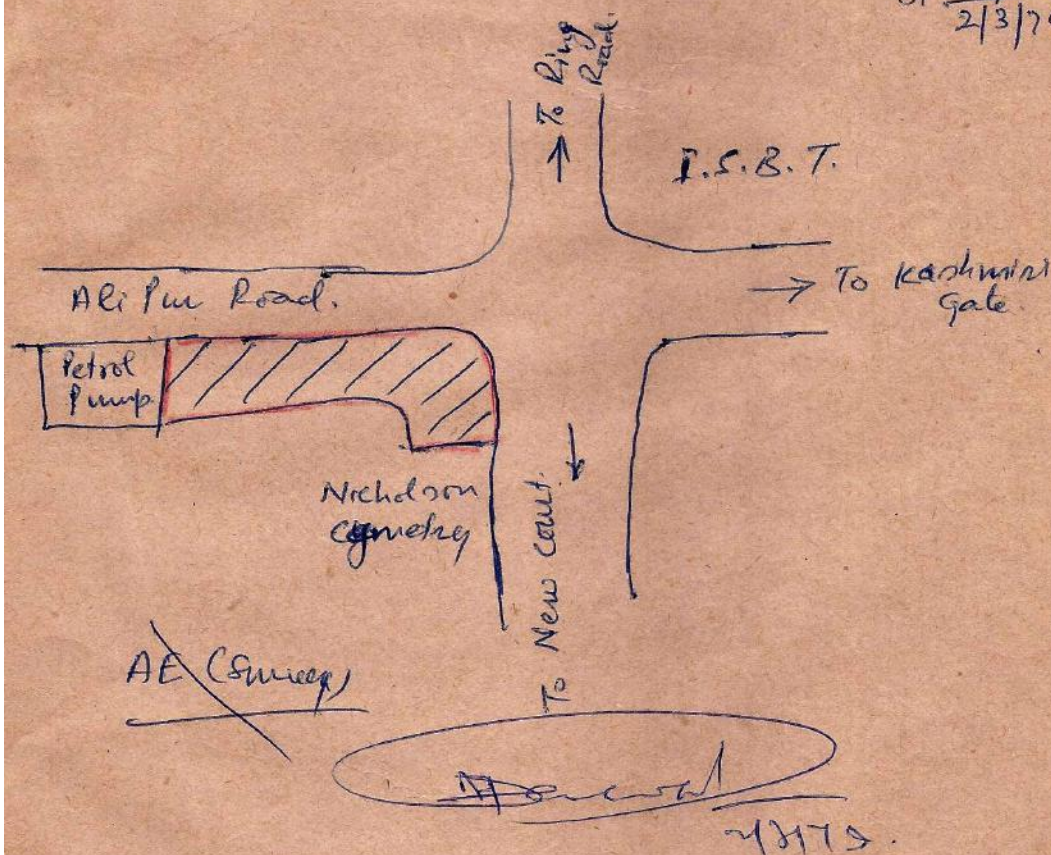 2/3/7
To Ring
Road.
I.S.B.T.
Ali Pur Road.
To Kashmiri
Gate.
Petrol
Pump
Nicholson
Cymetry
To New Court.
AE